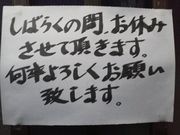 しばらくの間、お休み
させて頂きます。
何卒よろしくお願い
致します。